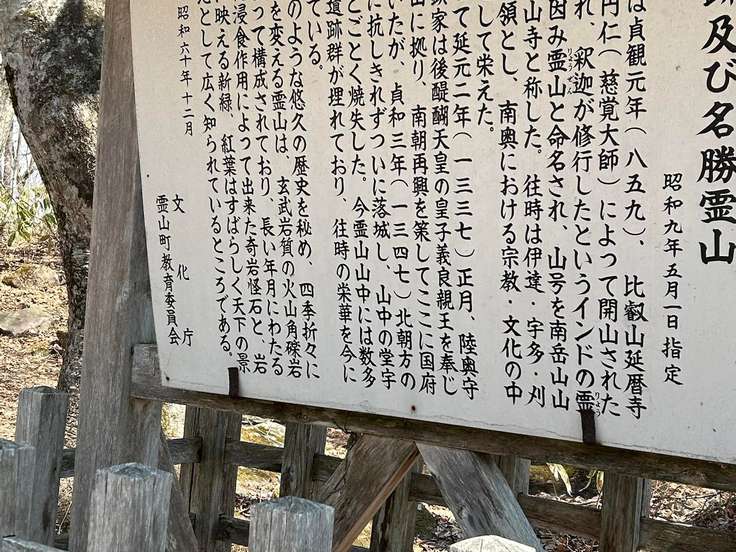 跡及び名勝霊山
昭和九年五月一日指定
は貞観元年（八五九）、比叡山延暦寺
円仁（慈覚大師）によって開山された
れ、釈迦が修行したというインドの霊
因み霊山と命名され、山号を南岳山山
山寺と称した。往時は伊達、宇多・刈
領とし、南奥における宗教・文化の中
して栄えた。
て延元二年（一三三七）正月、陸奥守
家は後醍醐天皇の皇子義良親王を奉じ
山に拠り、南朝再興を策してここに国府
いたが、貞和三年（一三四七）北朝方の
に抗しきれずついに落城し、山中の堂宇
ごとく焼失した。今霊山山中には数多
遺跡群が埋れており、往時の栄華を今に
ている。
のような悠久の歴史を秘め、四季折々に
を変える霊山は、玄武岩質の火山角礫岩
って構成されており、長い年月にわたる
浸食作用によって出来た奇岩怪石と、岩
に映える新緑、紅葉はすばらしく天下の景
として広く知られているところである。
昭和六十年十二月
文化庁
霊山町教育委員会